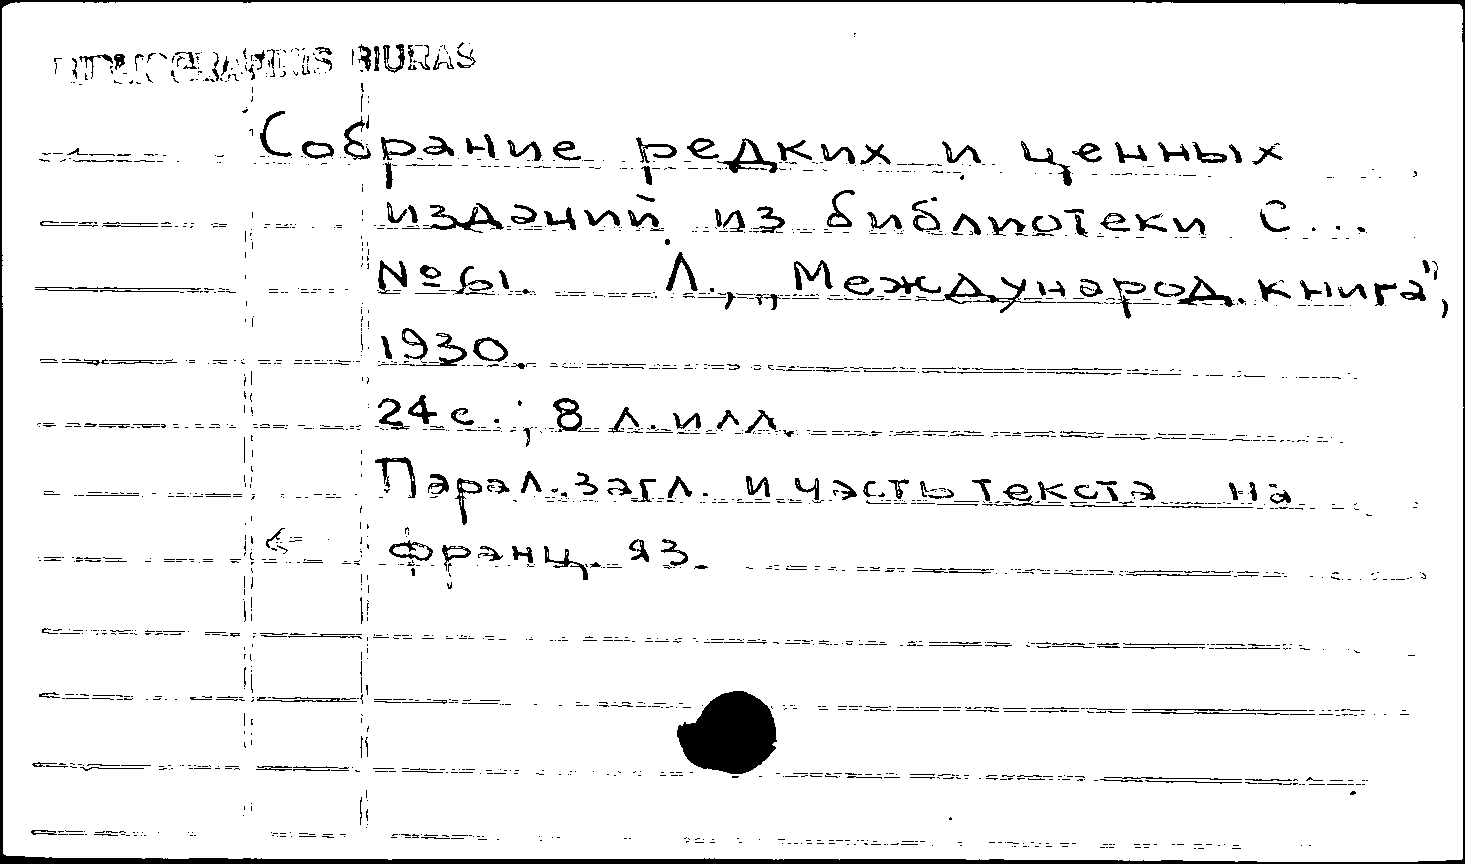 BIBLIOGRAFINIS BIURAS
Собрание редких и ценных
изданий из библиотеки С...
№ 61. Л., „Международ. книга",
1930.
24 с.; 8 л. илл.
Парал. загл. и часть текста на
франц. яз.